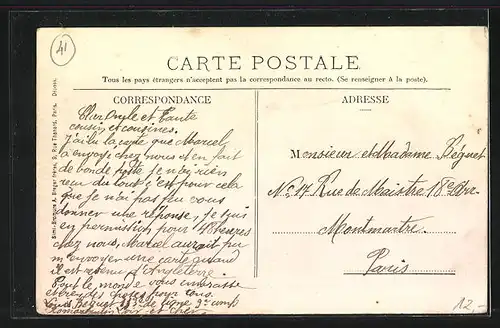 41
CARTE POSTALE
Tous les pays étrangers n'acceptent pas la correspondance au recto. (Se renseigner à la poste).
CORRESPONDANCE
Cher Oncle et Tante
cousin et cousines.
J'ai lu la carte que Marcel
a envoyé chez nous et en fait
de bonde poste je n'ai rien
reçu du tout c'est pour cela
que je n'ai pas peu vous
donner une réponse, je suis
en permission pour 48 heures
chez nous, Marcel aurait pu
m'envoyer une carte quand
il est revenu d'Angleterre.
Tout le monde vous embrasse
Louis Béguet de ligne
ADRESSE
Monsieur et Madame Béguet
No 17 Rue de Maistre 18e Arr
Montmartre
Paris
Simi-Bromure A. Breger Frères, 9, Rue Thénard, Paris.
12,-